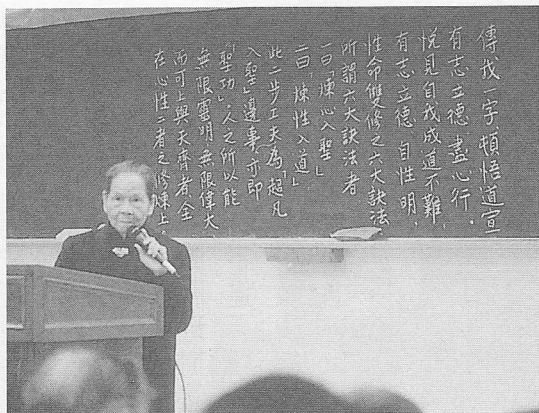 傳我一字頓悟道宣
有志立德 盡心行，
悅見自我成道不難，
有志立德 自性明，
性命雙修之六大訣法
所謂六大訣法者
一曰「煉心入聖」
二曰「煉性入道」
此二步工夫為「超凡
入聖」邊事，亦即
「聖功」。人之所以能
無限靈明，無限偉大，
而可上與天齊者，全
在心性二者之修煉上。